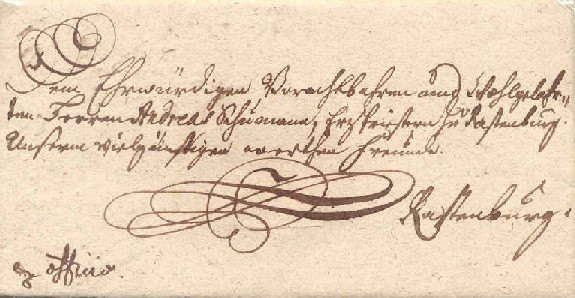 Dem Ehrwürdigen Vorachtbahren und Wohlgelehr-
ten Herren Andreas Schumann, Ertzpriestern zu Rastenburg.
Unserm vielgünstigen werthen Freunde.
Rastenburg.
ex officio.